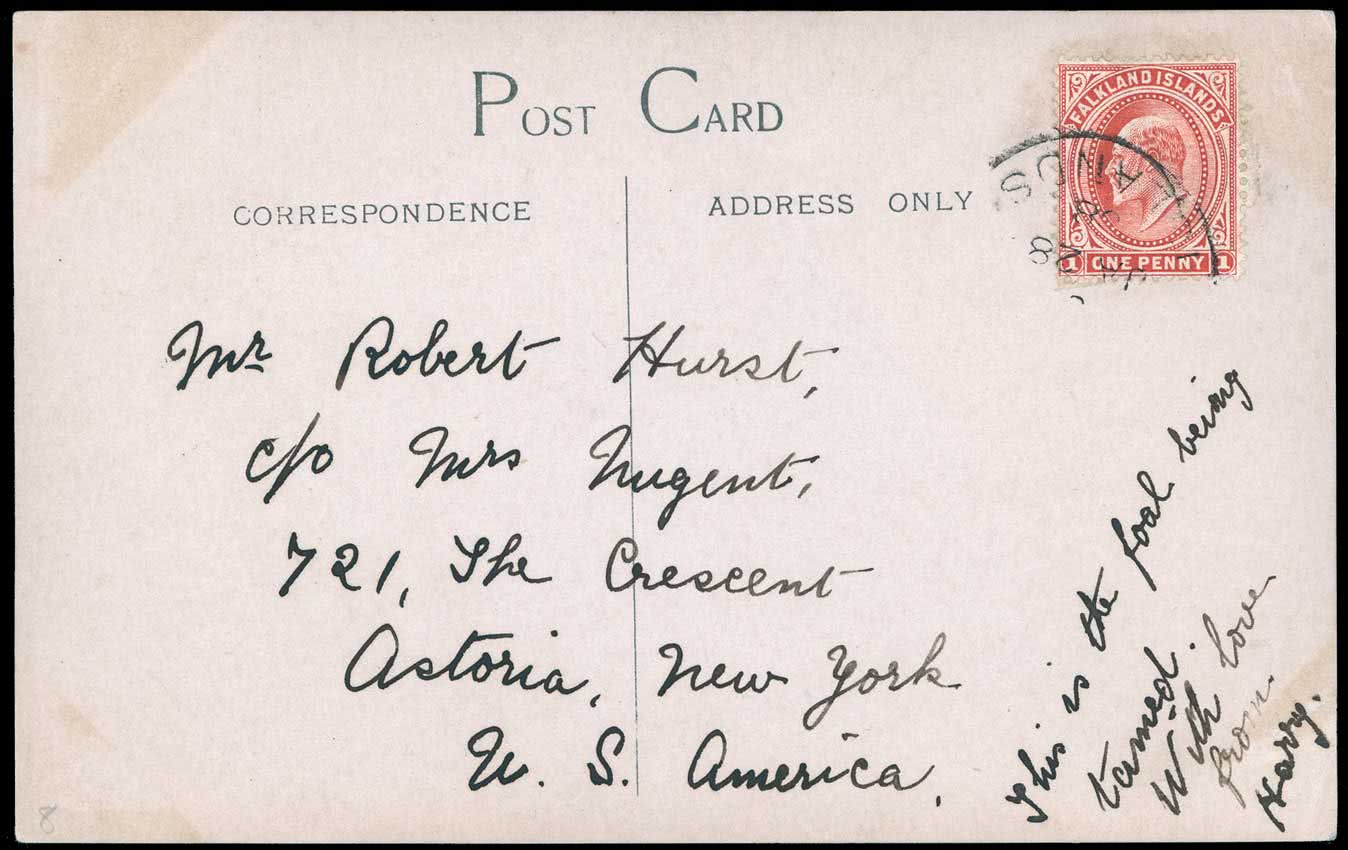 POST CARD
CORRESPONDENCE
ADDRESS ONLY
FALKLAND ISLANDS
1 ONE PENNY 1
Mr Robert Hurst,
c/o Mrs Nugent,
721, The Crescent
Astoria, New York
U. S. America,
This is the foal being
tamed.
With love
from
Harry.
8